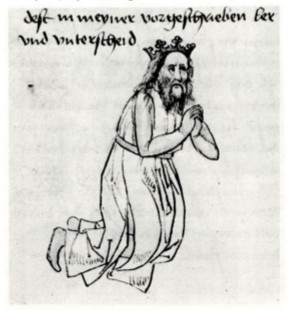 dest in meyner vorgeschrieben ler
vnd vnterscheid